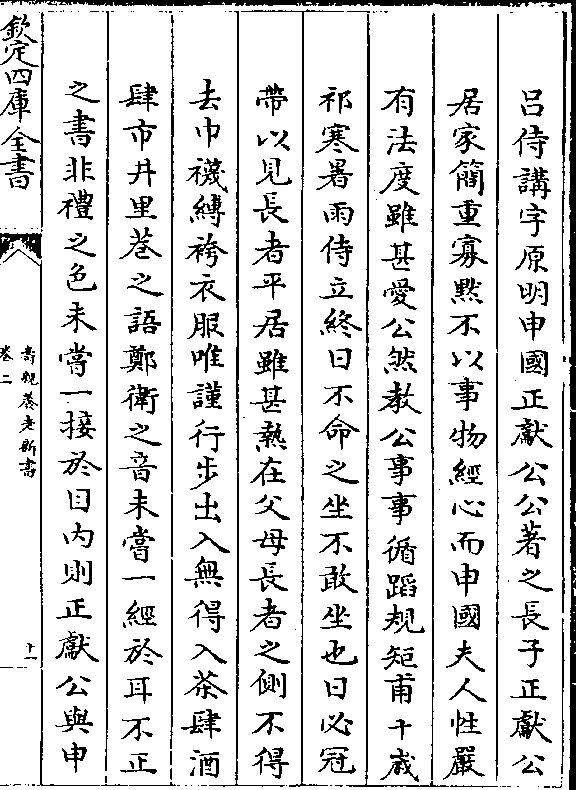 呂侍講字原明申國正獻公公著之長子正獻公
居家簡重寡黙不以事物經心而申國夫人性嚴
有法度雖甚愛公然教公事事循蹈規矩甫十歲
祁寒暑雨侍立終日不命之坐不敢坐也日必冠
帶以見長者平居雖甚熱在父母長者之側不得
去巾襪縛袴衣服唯謹行步出入無得入茶肆酒
肆市井里巷之語鄭衛之音未嘗一經於耳不正
之書非禮之色未嘗一接於目内則正獻公與申
欽定四庫全書
壽親養老新書
卷二
十一